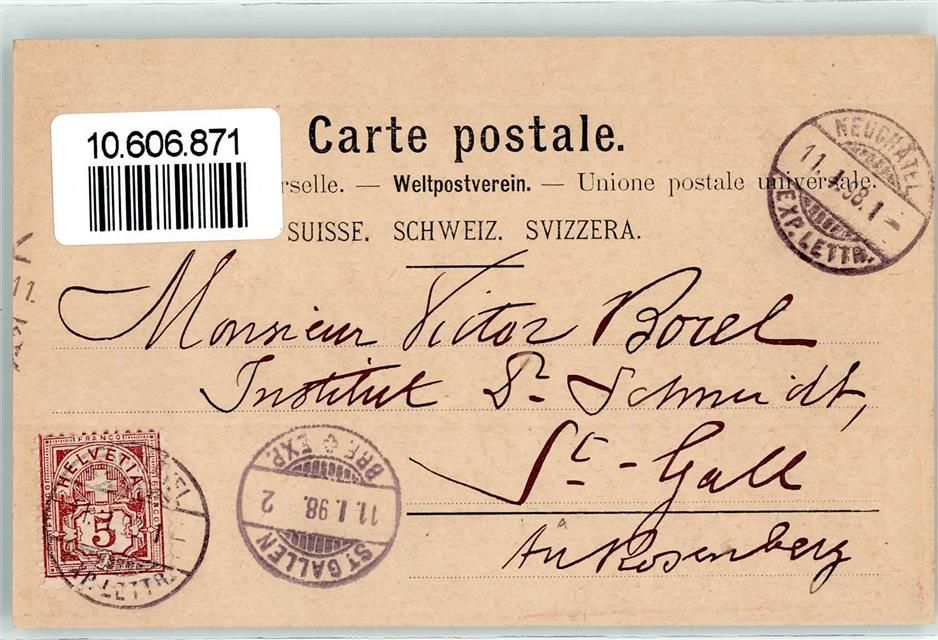 10.606.871
Carte postale.
rselle. — Weltpostverein. — Unione postale universale.
SUISSE. SCHWEIZ. SVIZZERA.
NEUCHÂTEL
11. I. 98. 1
EXP. LETTR.
Monsieur Victor Borel
Institut Dr. Schmidt,
St-Gall
Au Rosenberg
FRANCO
HELVETIA
5
XP. LETTR.
BRF. EXP.
11. I. 98. 2
ST GALLEN